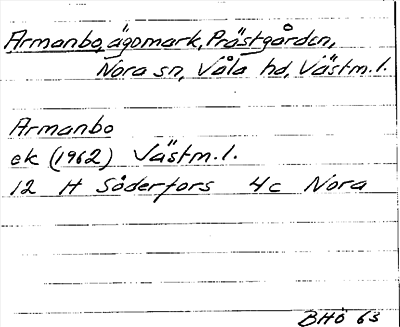 Armanbo, ägomark, Prästgården,
Nora sn, Våla hd, Västm.l.
Armanbo
ek (1962) Västm.l.
12 H Söderfors 4c Nora
BHÖ 63